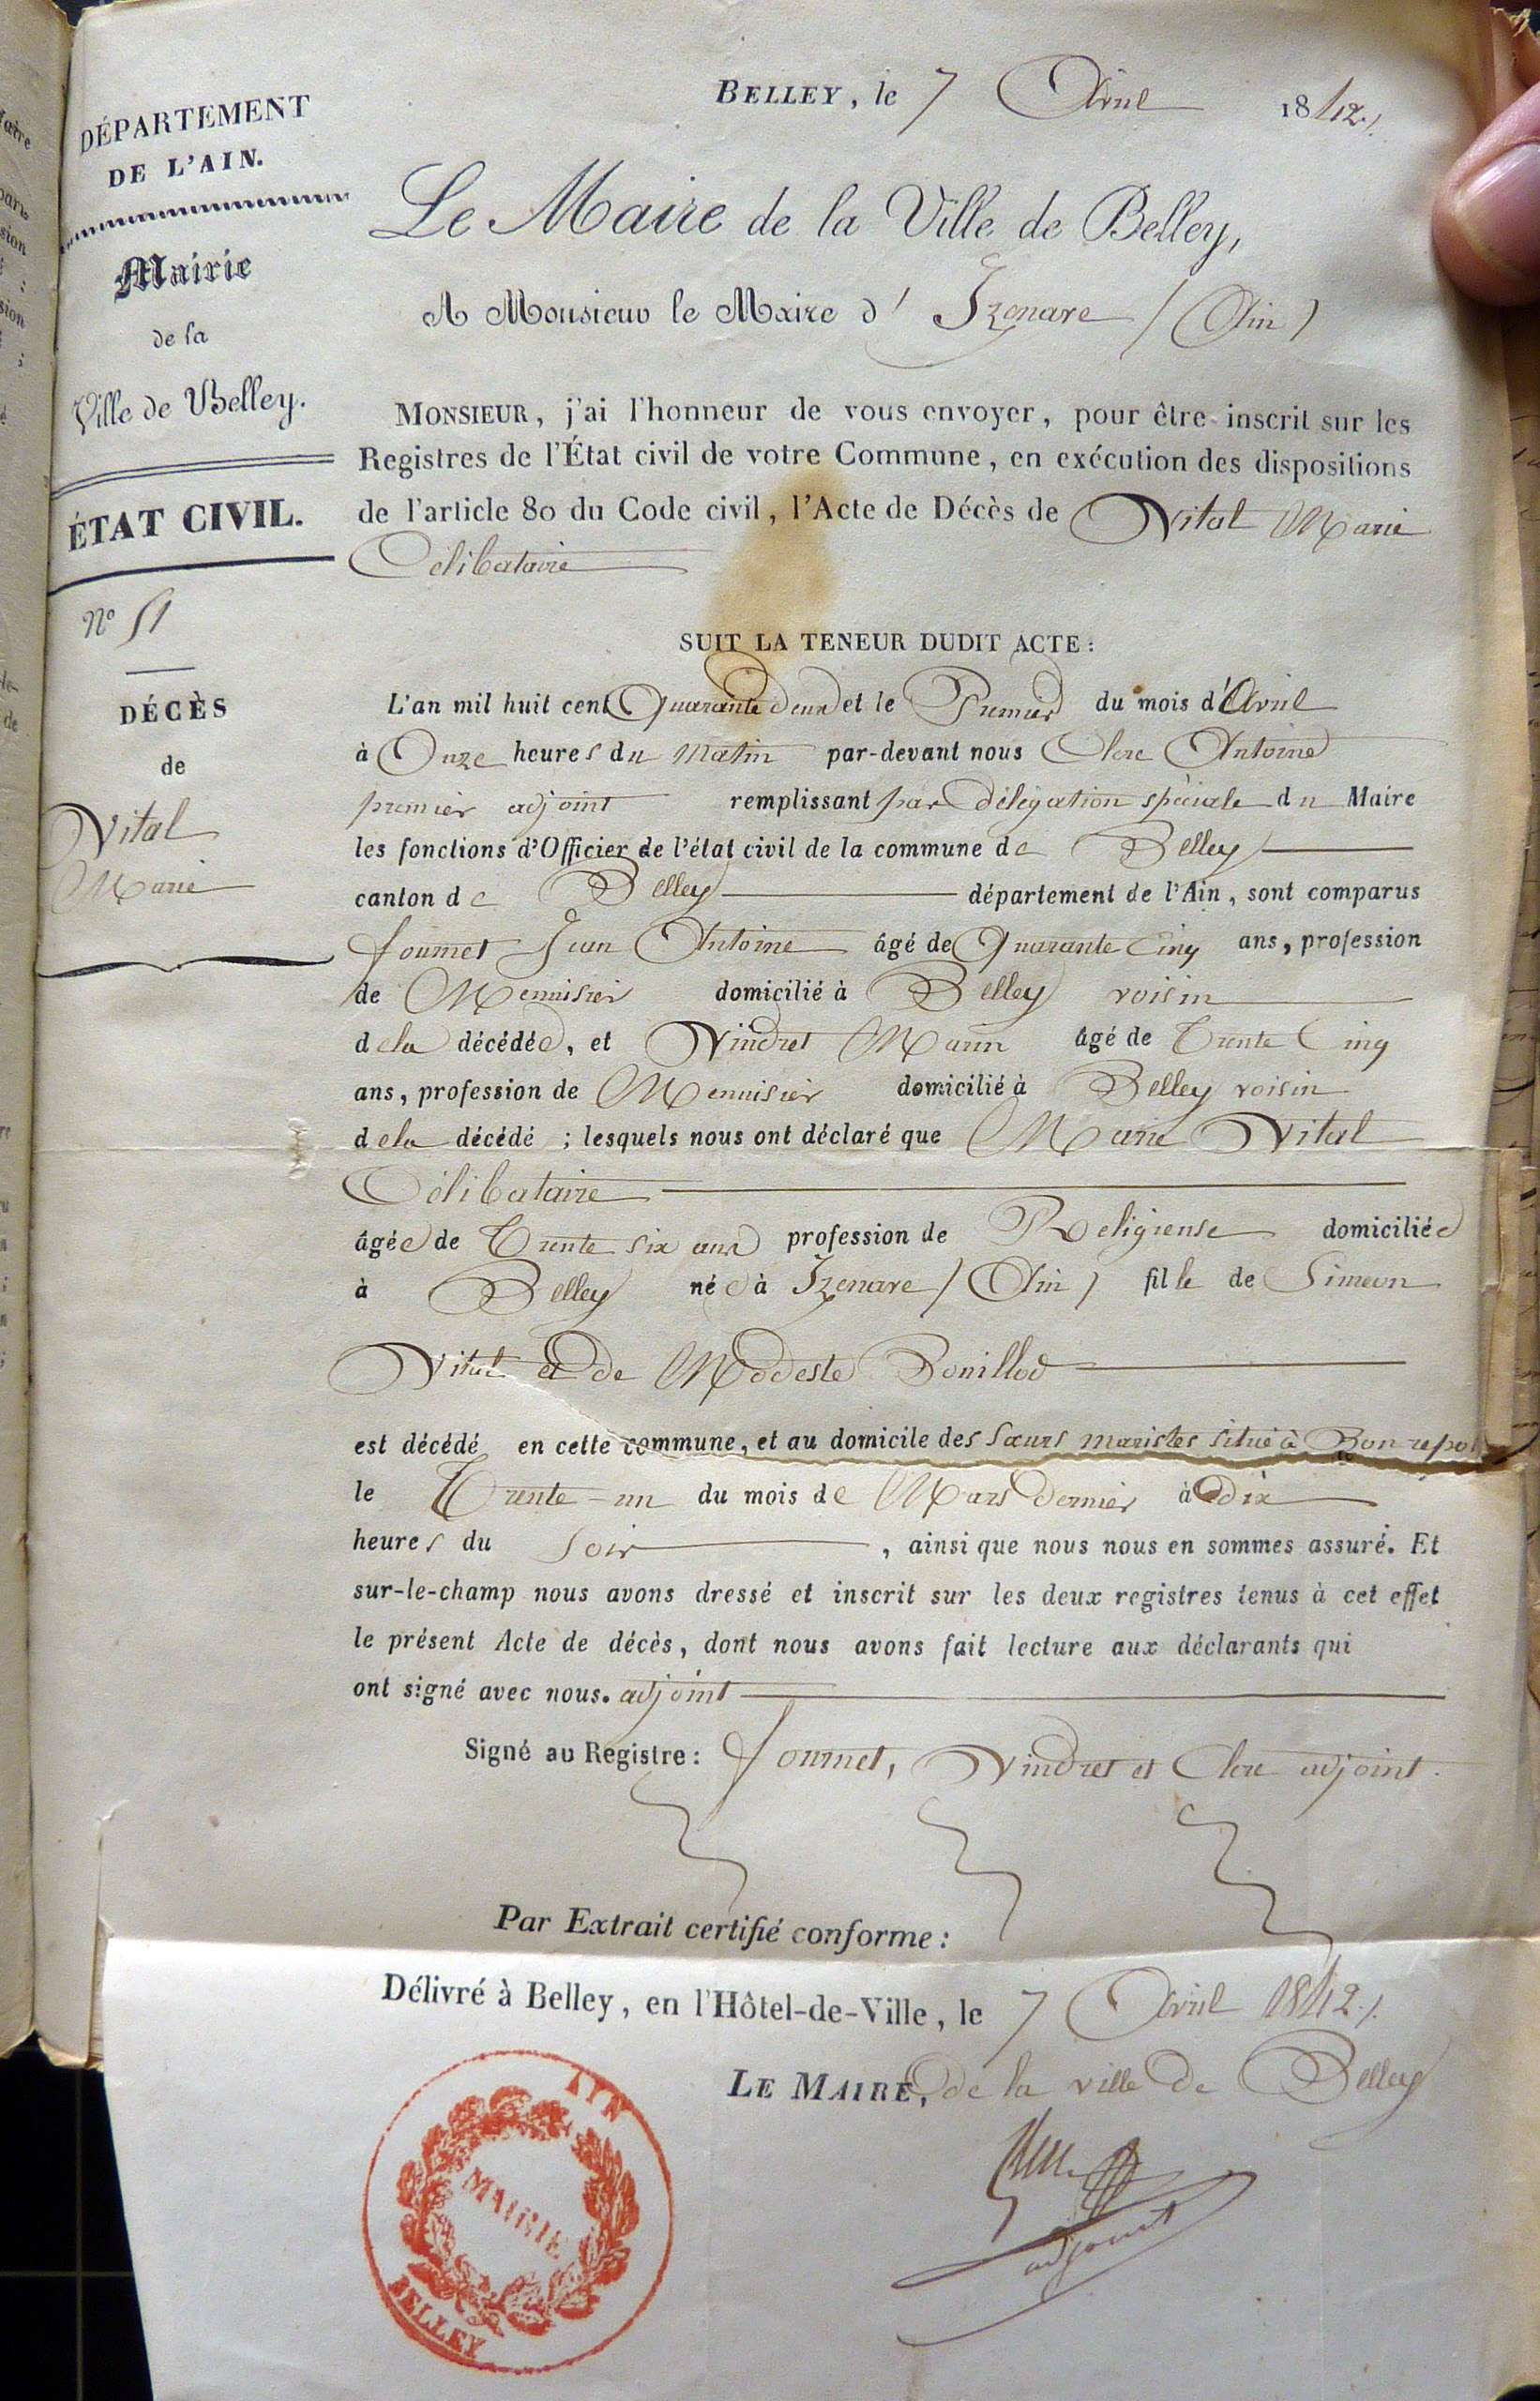 DÉPARTEMENT
DE L'AIN.
Mairie
de la
Ville de Belley.
ÉTAT CIVIL.
N° 51
DÉCÈS
de
Vital
Marie
BELLEY, le 7 Avril 1842./.
Le Maire de la Ville de Belley,
A Monsieur le Maire d' Izenave (Ain)
MONSIEUR, j'ai l'honneur de vous envoyer, pour être inscrit sur les
Registres de l'État civil de votre Commune, en exécution des dispositions
de l'article 80 du Code civil, l'Acte de Décès de Vital Marie
Célibataire
SUIT LA TENEUR DUDIT ACTE:
L'an mil huit cent Quarante deux et le Premier du mois d'Avril
à Onze heures du Matin par-devant nous Clerc Antoine
premier adjoint remplissant par délégation spéciale du Maire
les fonctions d'Officier de l'état civil de la commune de Belley
canton de Belley département de l'Ain, sont comparus
fournet Jean Antoine âgé de Quarante Cinq ans, profession
de Menuisier domicilié à Belley voisin
de la décédée, et Vindret Marin âgé de Trente Cinq
ans, profession de Menuisier domicilié à Belley voisin
de la décédé ; lesquels nous ont déclaré que Marie Vital
Célibataire
âgée de Trente six ans profession de Religieuse domiciliée
à Belley née à Izenave (Ain) fille de Simeon
Vital et de Modeste Bonillod
est décédé en cette commune, et au domicile des Sœurs maristes situé à Bon repos
le Trente-un du mois de Mars dernier à dix
heures du Soir, ainsi que nous nous en sommes assuré. Et
sur-le-champ nous avons dressé et inscrit sur les deux registres tenus à cet effet
le présent Acte de décès, dont nous avons fait lecture aux déclarants qui
ont signé avec nous. adjoint
Signé au Registre: fournet, Vindret et Clerc adjoint.
Par Extrait certifié conforme:
Délivré à Belley, en l'Hôtel-de-Ville, le 7 Avril 1842./.
LE MAIRE, de la ville de Belley
adjoint
AIN
MAIRIE
BELLEY